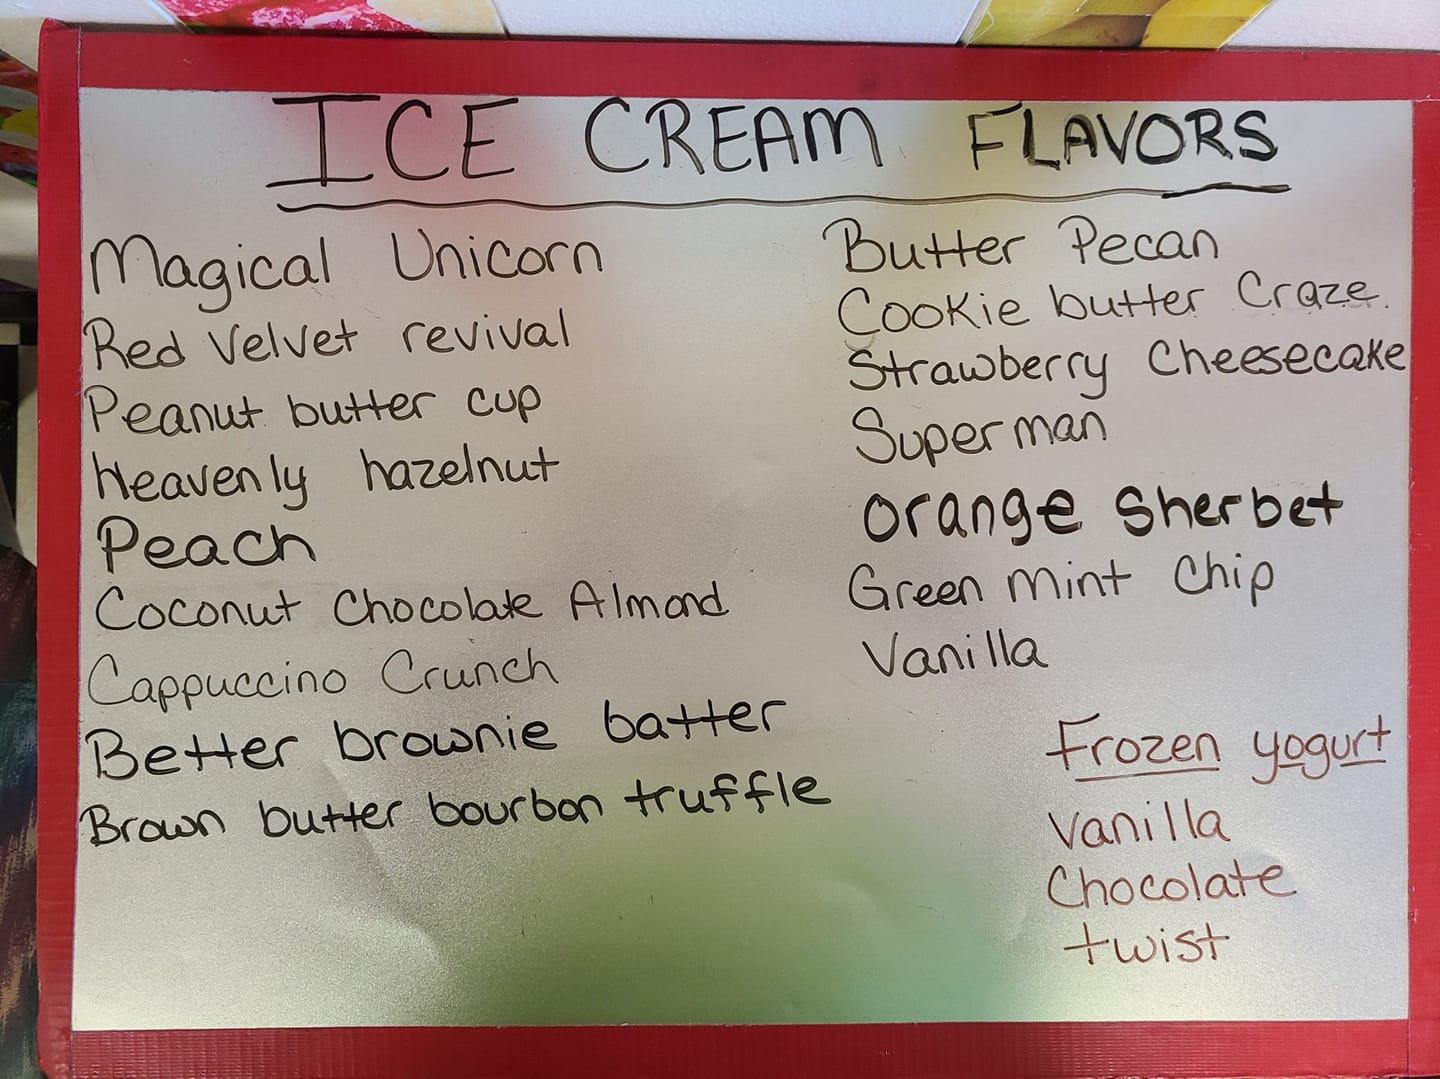 ICE CREAM FLAVORS
Magical Unicorn
Red Velvet revival
Peanut butter cup
Heavenly hazelnut
Peach
Coconut Chocolate Almond
Cappuccino Crunch
Better brownie batter
Brown butter bourbon truffle
Butter Pecan
Cookie butter Craze.
Strawberry Cheesecake
Superman
orange sherbet
Green mint Chip
Vanilla
Frozen yogurt
Vanilla
Chocolate
twist